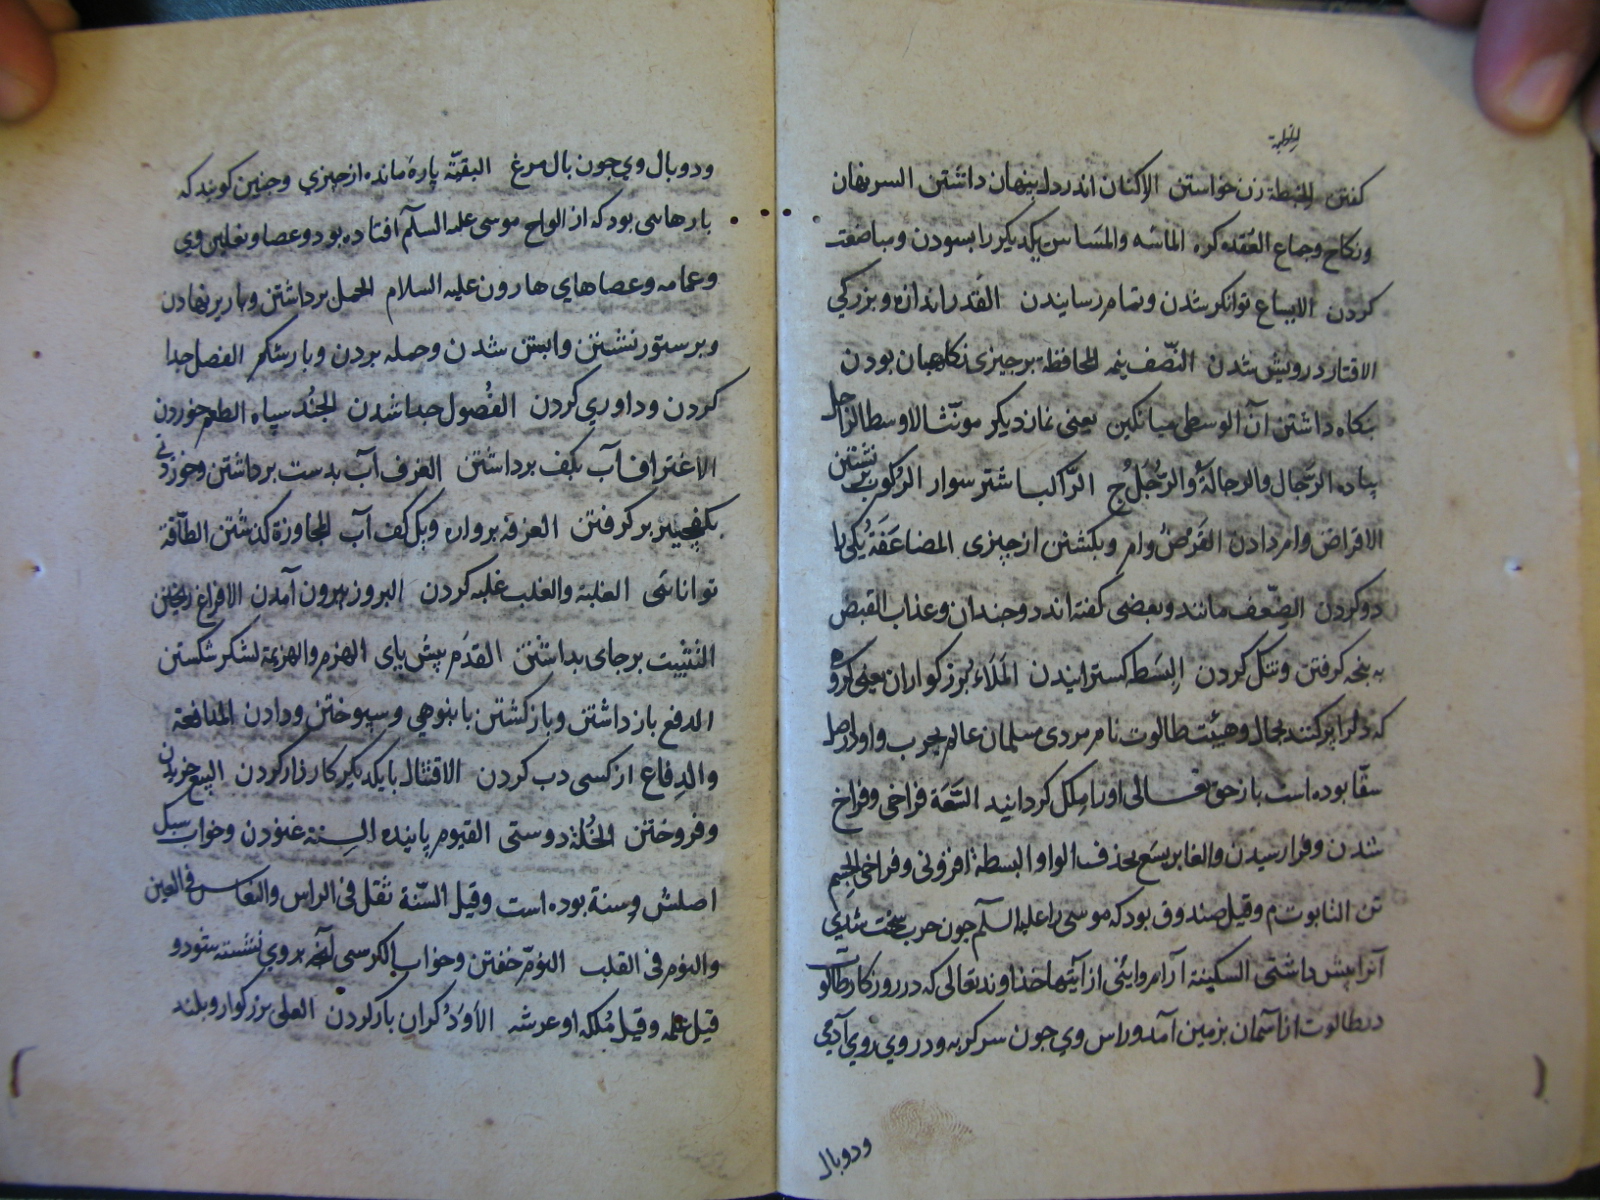 کفتن الخطبة زن خواستن الاکنان اندر دل پنهان داشتن السر نهان
ونکاح وجماع العقده کره الماسّه والمسَاس یکدیکر را بسودن ومباضعت
کردن الایساع توانکر شدن وتمام رسانیدن القَدر اندازه وبزرکی
الاقتار درویش شدن النّصف نیمه المحافظة بر چیزی نکاهبان بودن
نکاه داشتن آن الوسطی میانکین یعنی نماز دیکر مونث الاوسط الراجل
پیاده الرّجال والرجالة والرّجل ج الرّاکب اشتر سوار الرّکوب بر نشستن
الاقراض وام دادن القَرض وام وبکشتن از چیزی المضاعَفَة یکی را
دو کردن الضِّعف مانند وبعضی کفته اند دو چندان وعذاب القبض
به پنجه کرفتن وتنک کردن البَسط کسترانیدن المَلَاء بزرکواران یعنی کروه
که دلرا پر کنند بجمال وهیئت طالوت نام مردی مسلمان عالم بحرب واو در اصل
سقّا بوده است باز حق تعالی اورا ملک کردانید السَّعَة فراخی وفراخ
شدن وفرا رسیدن والغابر یسَع بحذف الواو البسطة افزونی وفراخی الجِسم
تن التابوت م وقیل صندوق بود که موسی را علیه السلم چون حرب سخت شدی
آنرا پیش داشتی السکینة آرام وایتی از آیتها خداوند تعالی که در روزکار طالوت
در طالوت از آسمان بزمین آمد وراس وی چون سر کربه ودر وی روی آدمی
ودو بال
ودو بال وی چون بال مرغ البقیّة پارهٔ مانده از چیزی وچنین کویند که
بارهاسی بود که از الواح موسی علیه السلم افتاده بود وعصا ونعلین وی
وعمامه وعصاهای هارون علیه السلام الحمل برداشتن وبار بر نهادن
وبر ستور نشستن وابستن شدن وحمله بردن وبار شکم الفصل جدا
کردن وداوری کردن الفُصول جدا شدن الجُند سپاه الطعم خوردن
الاغتراف آب بکف برداشتن الغرف آب بدست برداشتن وخوردنی
بر کرفتن الغرفة برواره ویک کف آب المجاوزة کذشتن الطّاقة
توانائی الغلبة والغلب غلبه کردن البروز بیرون آمدن الافراغ ریختن
التثبیت بر جای بداشتن القدَم پیش پای الهزم والهزیمة لشکر شکستن
الدفع باز داشتن وباز کشتن بانبوهی وسپوختن ودادن المدافعة
والدِفاع از کسی دب کردن الاقتتال با یکدیکر کارزار کردن البیع خریدن
وفروختن الخُلّة دوستی القیوم پاینده السِنة غنودن وخواب سبک
اصلش وسنة بوده است وقیل السّنة ثقل فی الراس والنعاس فی العین
والنوم فی القلب النوم خفتن وخواب الکرسی آنچه بر وی نشسته ستود و
قیل علمه وقیل مُلکه او عرشه الاَوَدُ کران بار کردن العلی بزرکوار وبلند